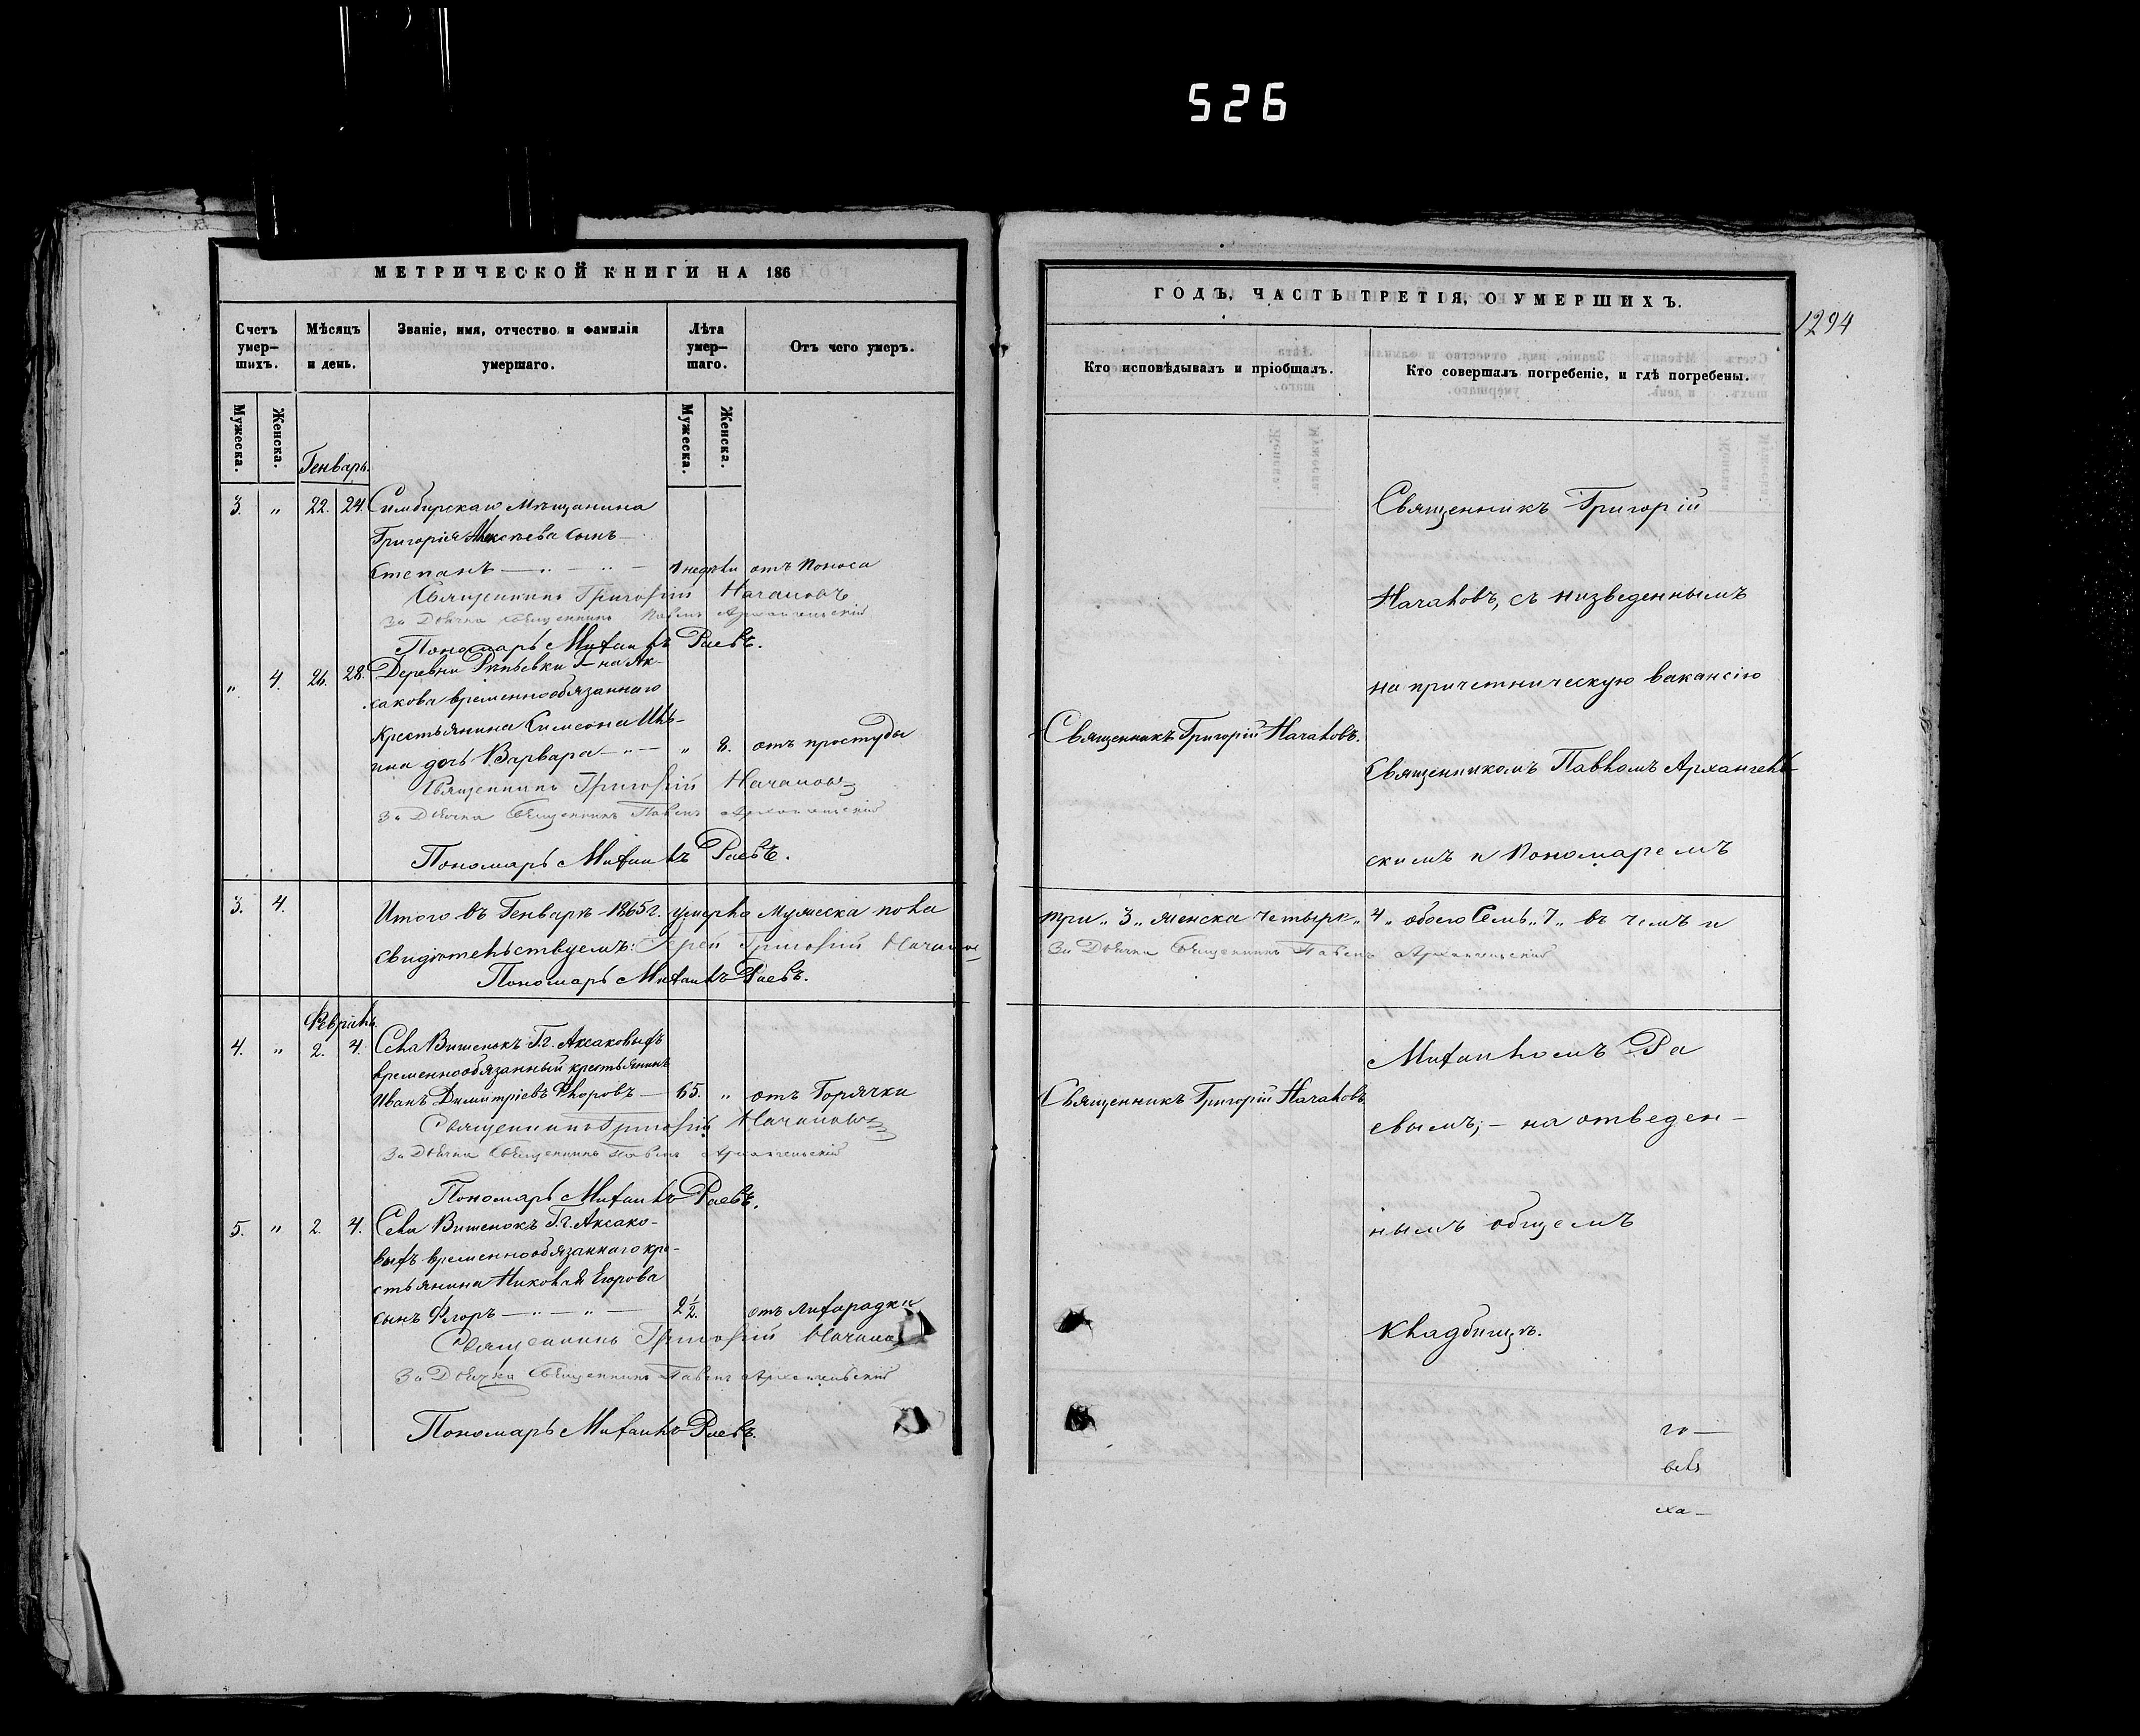 526
МЕТРИЧЕСКОЙ КНИГИ НА 186
Счетъ умер—шихъ.
Мѣсяцъ и день.
Званіе, имя, отчество и фамилія умершаго.
Лѣта умер—шаго.
Отъ чего умеръ.
Мужеска.
Женска.
Мужеска.
Женска.
Генварь.
3. „ 22. 24. Симбирскаго Мѣщанина
Григорія Алексѣева сынъ —
Степанъ — „ — „ — 1 недѣли отъ поноса
Священникъ Григорій Началовъ
За Дьячка Священникъ Павелъ Архангельскій
Пономарь Михаилъ Раевъ.
„ 4. 26. 28. Деревни Репьевки Г-на Ак-
сакова временнообязаннаго
крестьянина Симеона Иль-
ина дочь Варвара — „ — „ 8. отъ простуды
Священникъ Григорій Началовъ
За Дьячка Священникъ Павелъ Архангельскій
Пономарь Михаилъ Раевъ.
3. 4. Итого въ Генварѣ 1865 г. умерло мужеска пола
свидѣтельствуемъ: Іерей Григорій Началов
Пономарь Михаилъ Раевъ.
Февраль.
4. „ 2. 4. Села Вишенокъ Г.г. Аксаковыхъ
временнообязанный крестьянинъ
Иванъ Димитріевъ Флоровъ — 65. „ отъ Горячки
Священникъ Григорій Началовъ
За Дьячка Священникъ Павелъ Архангельскій
Пономарь Михаилъ Раевъ.
5. „ 2. 4. Села Вишенокъ Г.г. Аксако-
выхъ временнообязаннаго кре-
стьянина Николая Егорова
сынъ Флоръ — „ — „ — 2½. отъ лихорадки
Священникъ Григорій Начало
За Дьячка Священникъ Павелъ Архангельскій
Пономарь Михаилъ Раевъ.
ГОДЪ, ЧАСТЬ ТРЕТІЯ, О УМЕРШИХЪ.
1294
Кто исповѣдывалъ и пріобщалъ.
Кто совершалъ погребеніе, и гдѣ погребены.
Священникъ Григорій
Началовъ, съ низведеннымъ
на причетническую вакансію
Священникъ Григорій Началовъ.
Священникомъ Павломъ Архангель-
скимъ и Пономаремъ
три „ 3 „ женска четыре „ 4 „ обоего Семь „ 7 „ въ чемъ и
За Дьячка Священникъ Павелъ Архангельскій
Михаиломъ Ра
Священникъ Григорій Началовъ
евымъ; — на отведен-
нымъ общемъ
кладбищѣ.
го —
велъ
ха —